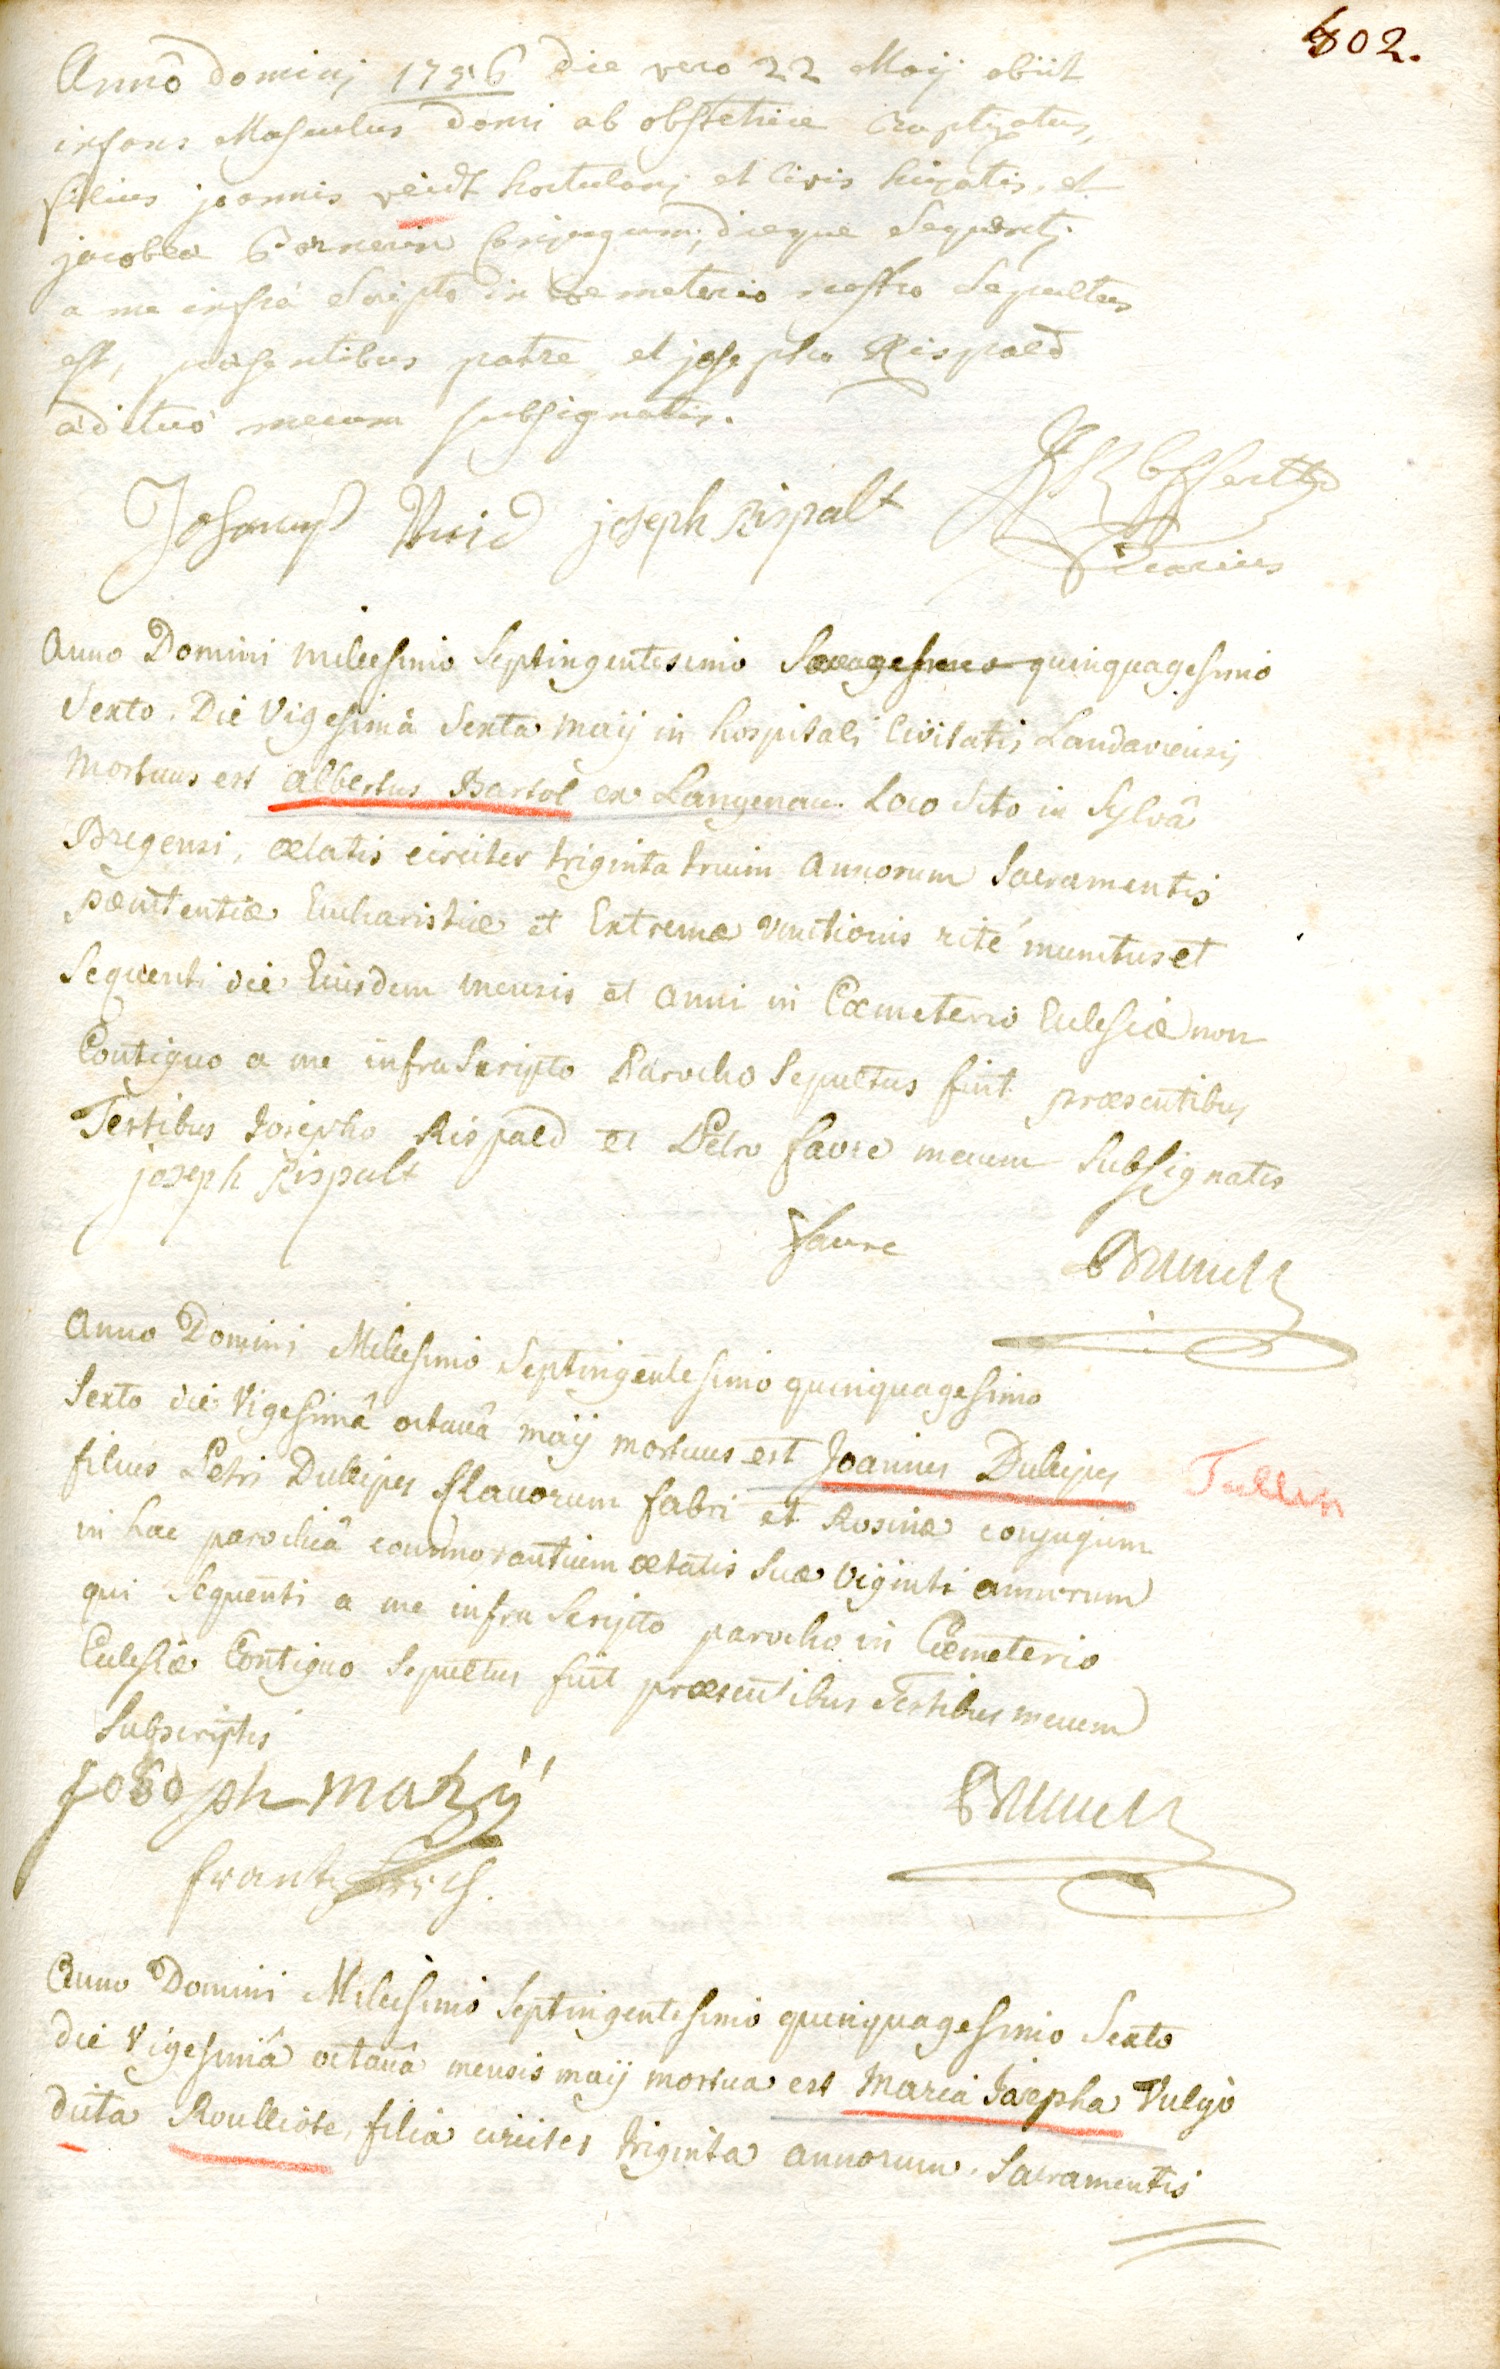 802.
Anno dominj 1756 die vero 22 Maij obiit
infans Masculus domi ab obstetrice baptizatus,
filius joannis veidt hortulanj et Civis hujatis, et
jacobea Cornerin Conjugum, dieque Sequentj
a me infra Scripto in Coemeterio nostro Sepultus
est, praesentibus patre et josepho Rispaed
aedituo mecum subsignatis.
Johannes Veid joseph Rispalt
Vicarius
Anno Domini millesimo Septingentesimo Sexagesimo quinquagesimo
Sexto. Die Vigesimâ Sexta maij in hospitali Civitatis Landaviensis
Mortuus est Albertus Bartol ex Langenau Loco Sito in Sylvâ
Bregensi, aetatis circiter triginta trium annorum Sacramentis
paenitentiae Eucharistiae et Extremae Unctionis rité munitus et
Sequenti die Eiusdem mensis et anni in Caemeterio Eclesiae non
Contiguo a me infra Scripto Parocho Sepultus fuit praesentibus
Testibus Josepho Rispaed et Petro favre mecum Subsignatis
joseph Rispalt
faure
Anno Domini Millesimo Septingentesimo quinquagesimo
Sexto die Vigesimâ octavâ maij mortuus est Joannes Dullipes
Tullin
filius Petri Dullipes Clavorum fabri et Rosinae conjugum
in hac parochiâ commorantium aetatis Suae Viginti annorum
qui Sequenti a me infra Scripto parocho in Caemeterio
Eclesiae Contiguo Sepultus fuit praesentibus Testibus mecum
Subscriptis
Joseph
frantz
Anno Domini Millesimo Septingentesimo quinquagesimo Sexto
die Vigesimâ octavâ mensis maij mortua est Maria Josepha Vulgo
dicta Roulliote, filia circiter triginta annorum. Sacramentis